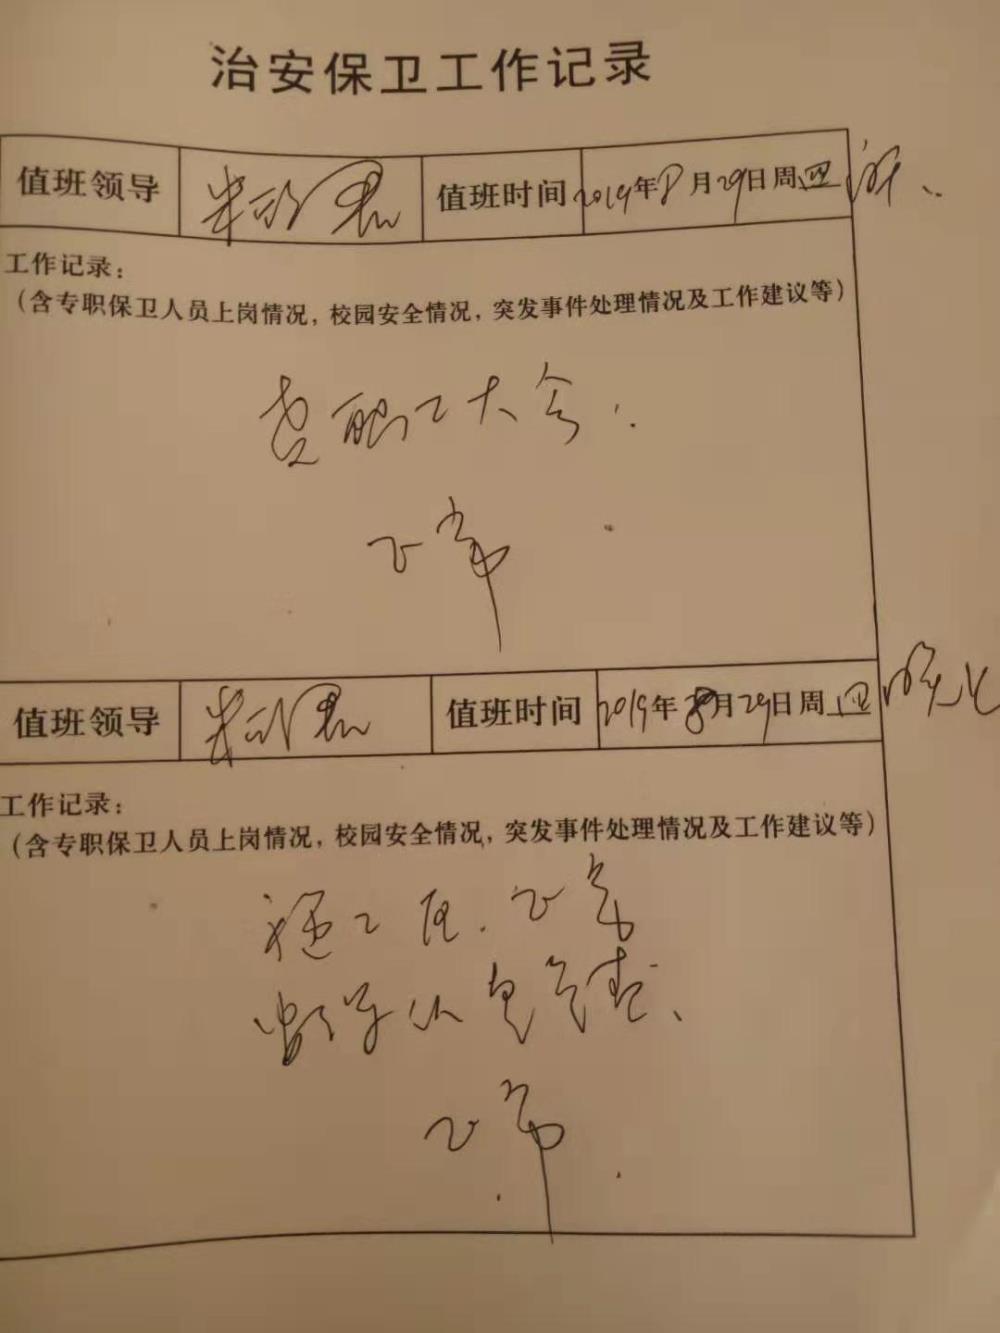 治安保卫工作记录
值班领导 值班时间 2019年8月29日周四
工作记录：
（含专职保卫人员上岗情况，校园安全情况，突发事件处理情况及工作建议等）
教职工大会.
正常
值班领导 值班时间 2019年8月29日周四 晚上
工作记录：
（含专职保卫人员上岗情况，校园安全情况，突发事件处理情况及工作建议等）
施工 正常
正常